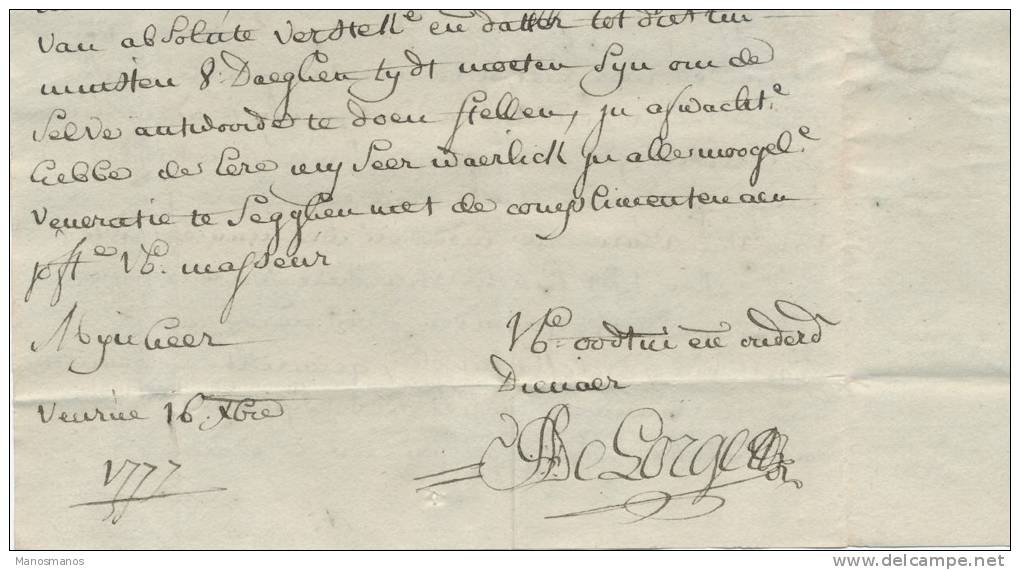 van absolute verstell.e en datter tot dies ten
minsten 8: Daeghen tydt moeten syn om de
selve antwoorde te doen stellen, in afwacht.e
hebbe de Eere my seer waerlick in alle moogel.e
veneratie te segghen met de complimenten aen
myn heer
vE. oodtm en onderd
Dienaer
veurne 16. Xbre
1777
De Lorge
Manosmanos
www.delcampe.net